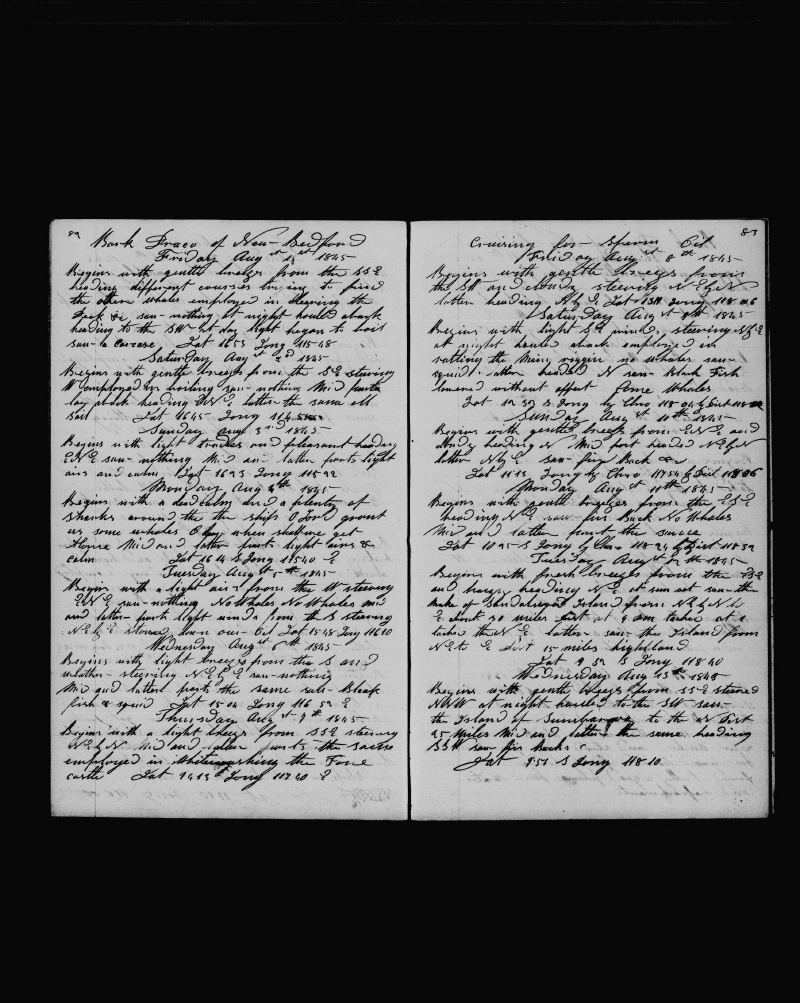 82
Bark Draco of New Bedford
Friday Aug st 1st 1845
Begins with gentle breezes from the SSE
heading different courses trying to find
the other whales employed in clearing the
Deck &c saw nothing at night hauled aback
heading to the SW at day light began to boil
saw a carcase Lat 1653 Long 11548
Saturday Aug st 2d 1845
Begins with gentle breezes from the SE steering
W employed in boiling saw nothing Mid parts
lay aback heading ENE latter the same all
sail Lat 1645 Long
Sunday Aug 3rd 1845
Begins with light trades and pleasant heading
ENE saw nothing Mid an latter parts light
airs and calm Lat 1623 Long 11522
Monday Aug 4th 1845
Begins with a dead calm and a plenty of
Sharks around the the ship O Lord grant
us some whales O when shall we get
Mid and latter parts light airs &
calm Lat 1604 S Long 11540 E
Tuesday Aug st 5th 1845
Begins with a light air from the W steering
ENE saw nothing No Whales No Whales mid
and latter parts light winds from the S steering
NEbE stowed down our Oil Lat 1548 Long 11610
Wednesday Aug st 6th 1845
Begins with light breezes from the S and
weather steering NEbE saw nothing
Mid and latter parts the same saw Black
fish & squid Lat 1504 Long 116 52 E
Thursday Aug st 7th 1845
Begins with a light breeze from SSE steering
NEbN Mid and latter parts the same
employed in Whitewashing the Fore
castle Lat 1413 S Long 11740 E
83
Cruising for Sperm Oil
Friday Aug st 8th 1845
Begins with gentle breezes from
the SE and cloudy steering NEbN
latter heading NbE Lat Long 118 06
Saturday Aug st 9th 1845
Begins with light SE wind steering NbE
at night hauled aback employed in
rattling the Main riggin no whales saw
squid latter headed N saw Black Fish
lowered without effect Come Whales
Lat 12 32 S Long by Chro 118 04 by Dist
Sunday Aug st 10th 1845
Begins with gentle breeze from ENE and
cloudy heading N Mid part headed NEbN
latter NbE saw fin Back &c
Lat 1113 Long by Chro 11754 by Dist 11806
Monday Aug st 11th 1845
Begins with gentle breezes from the ESE
heading NE saw fin Back No Whales
Mid and latter parts the same
Lat 1025 S Long by Chro 118 24 by Dist 118 32
Tuesday Aug st 12th 1845
Begins with fresh breezes from the ESE
and heading NE at sun set saw the
make of Sandalwood Island from NEbN to
E about 30 miles dist at 9 am tacked at 1
tacked the NE latter saw the Island from
NE to E Dist 15 miles highland
Lat 9 52 S Long 118 40
Wednesday Aug 13th 1845
Begins with gentle breezes from SSE steered
NWW at night hauled to the SW saw
the Island of Sumbarwa to the N Dist
25 Miles Mid and latter the same heading
SSW saw fin Backs
Lat 951 S Long 11810